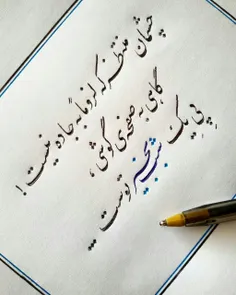 چشمان منتظر که لزوماً به جاده نیست !
گاهی به صفحه‌ی گوشی ،
پیِ یک
شب بخیر توست ..